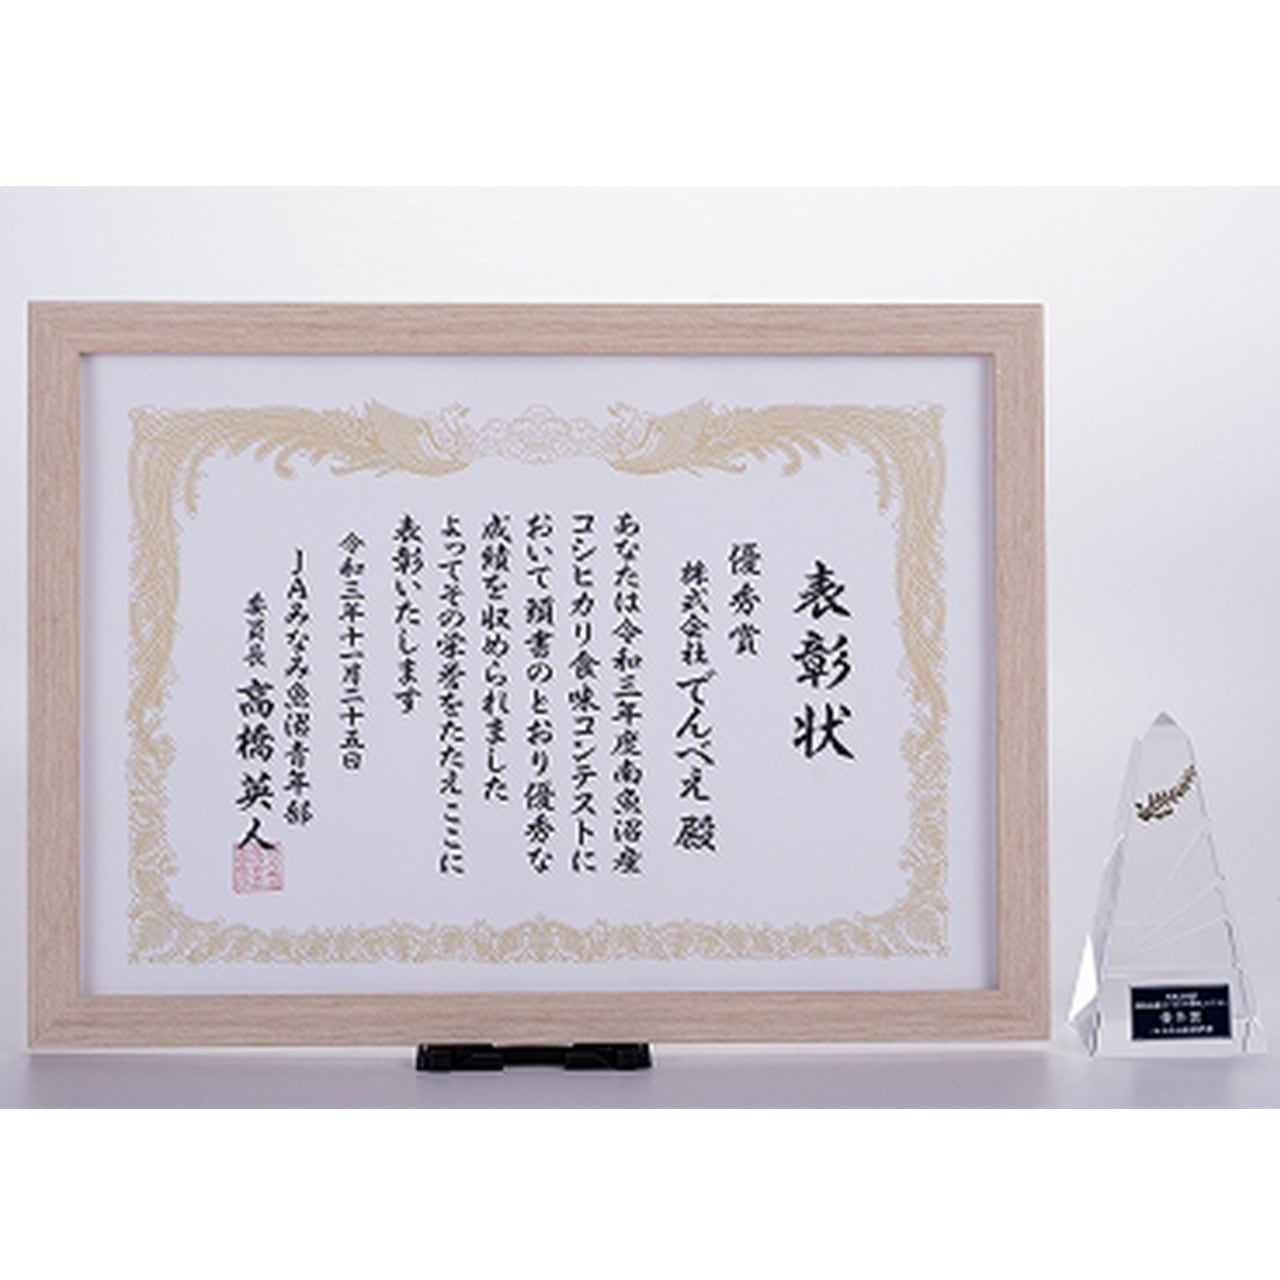 表彰状
優秀賞
株式会社でんべえ殿
あなたは令和三年度南魚沼産
コシヒカリ食味コンテストに
おいて頭書のとおり優秀な
成績を収められました
よってその栄誉をたたえここに
表彰いたします
令和三年十一月二十五日
JAみなみ魚沼青年部
委員長 高橋英人
優秀賞